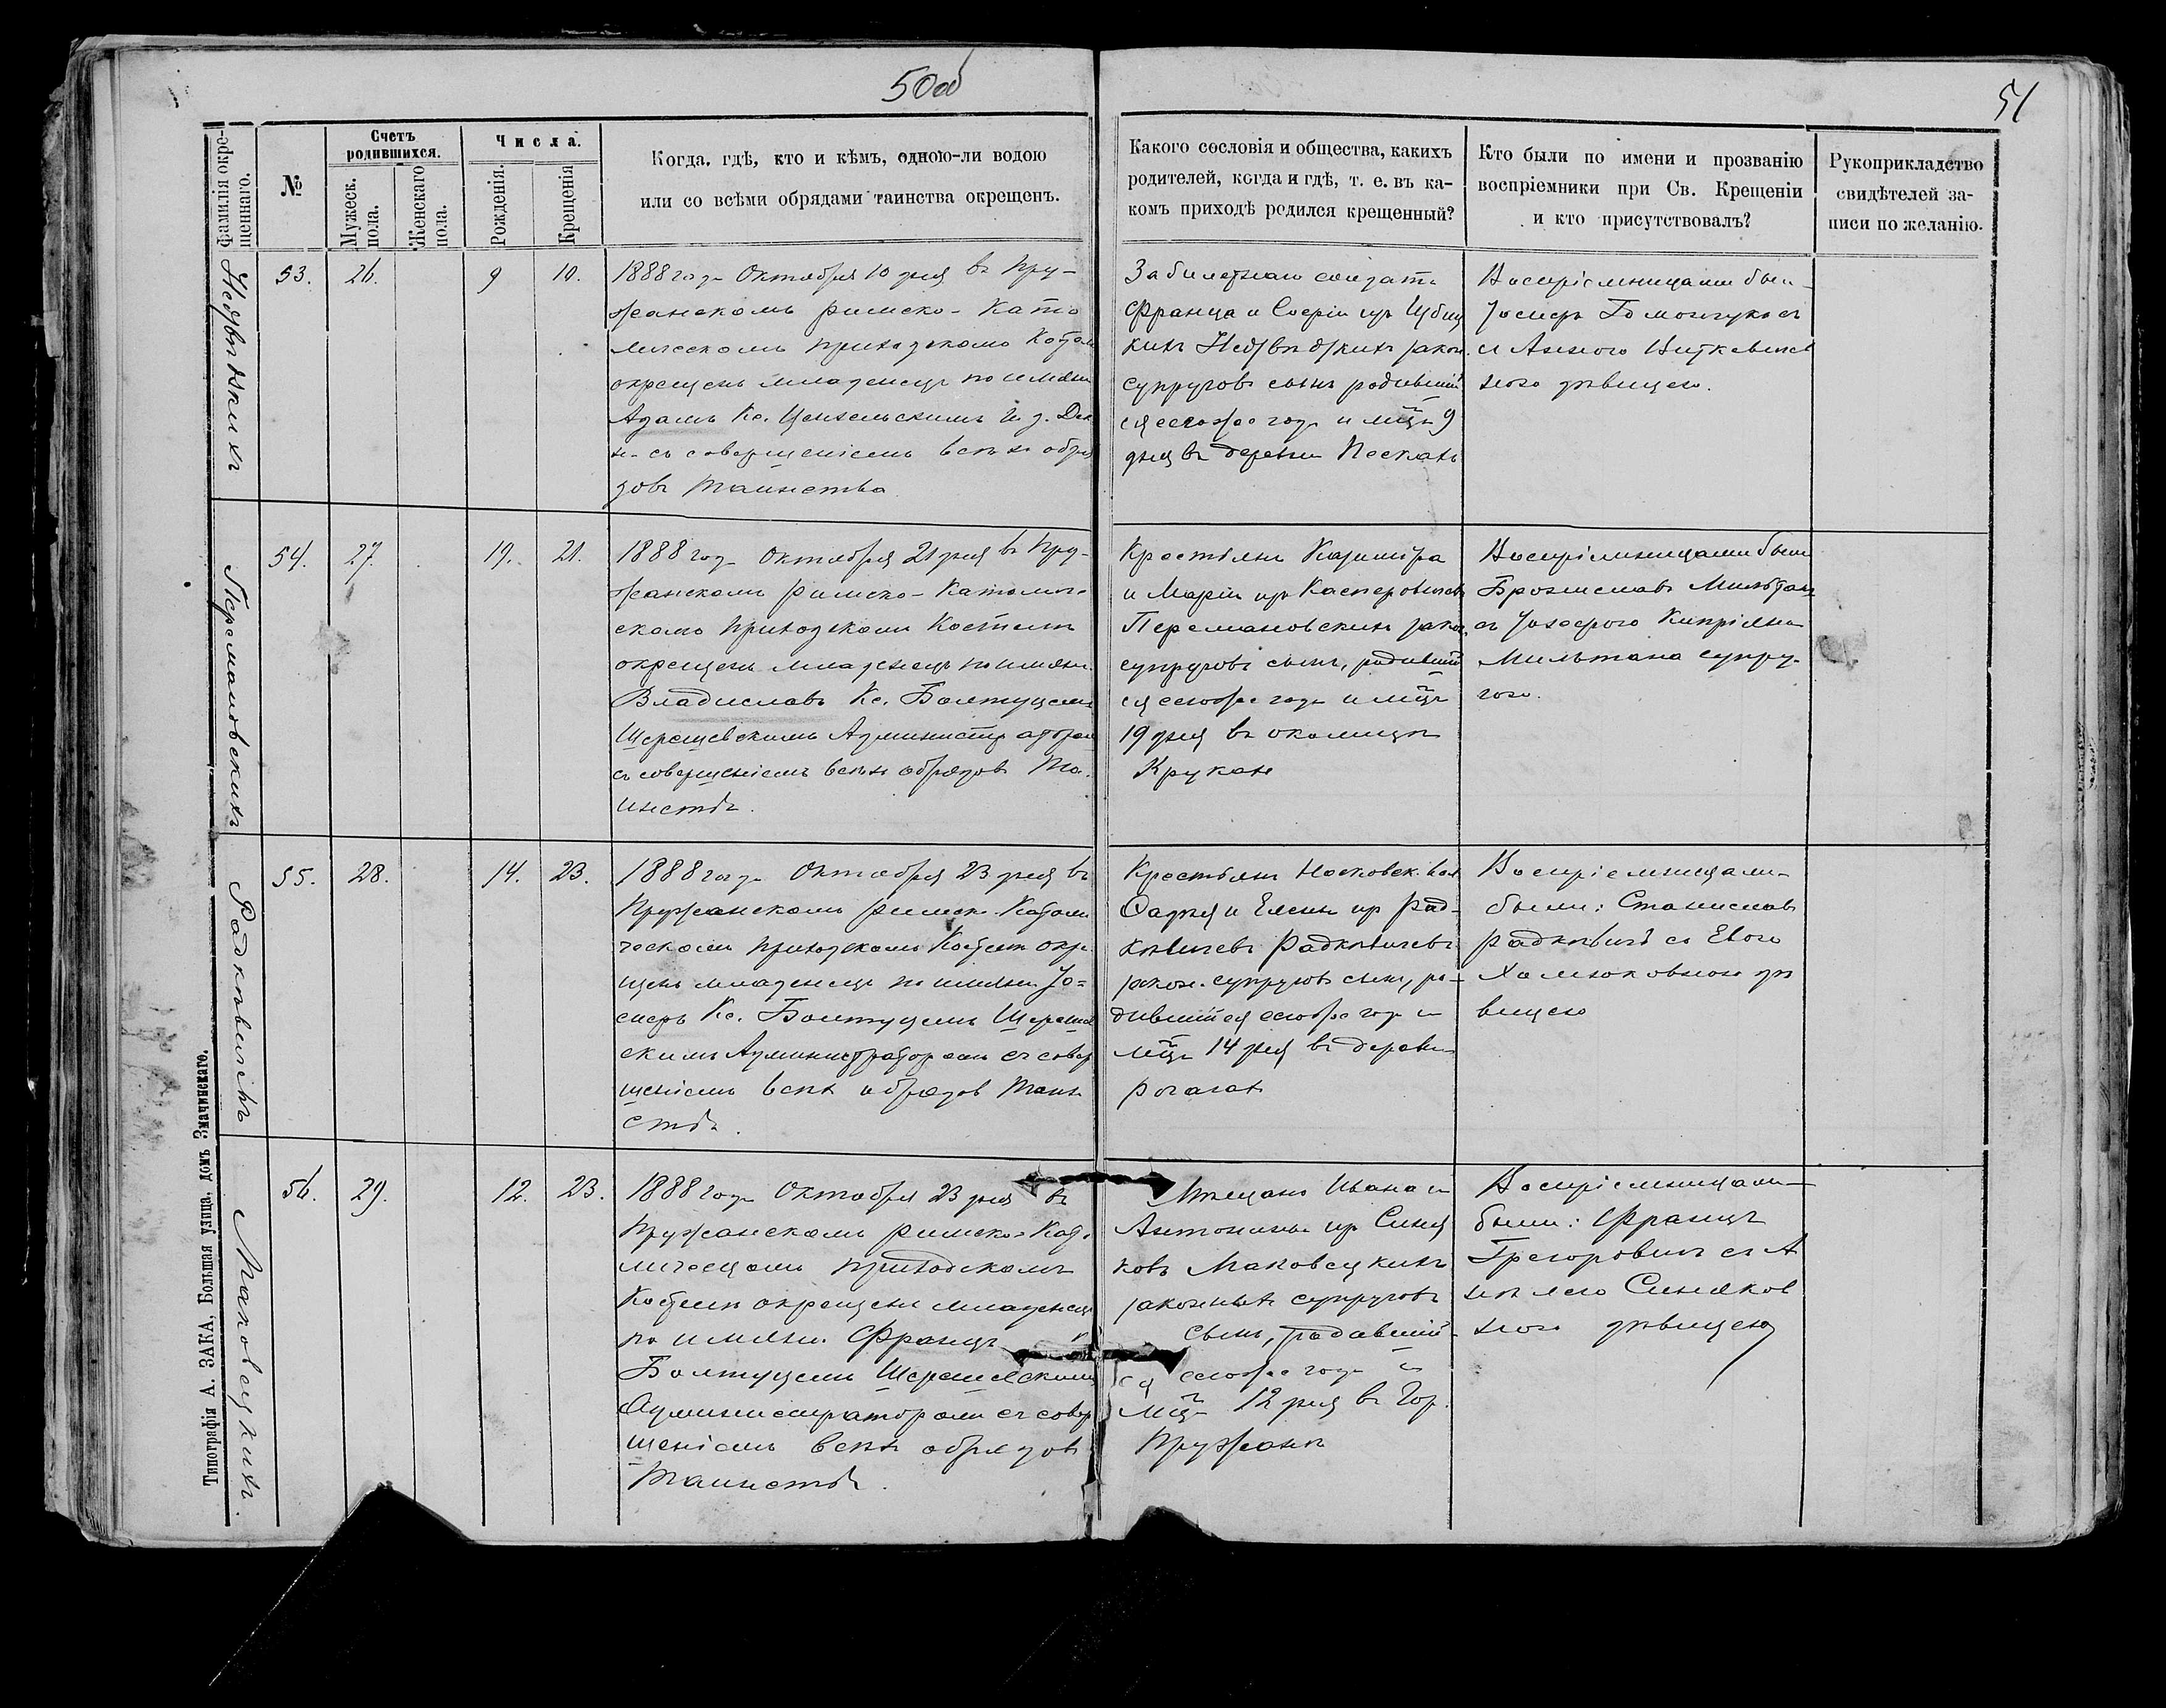 50об
51
Фамилія окре-
щеннаго.
№
Счетъ
родившихся.
Мужеск.
пола.
Женскаго
пола.
Числа.
Рожденія.
Крещенія
Когда, гдѣ, кто и кѣмъ, одною-ли водою
или со всѣми обрядами таинства окрещенъ.
Какого сословія и общества, какихъ
родителей, когда и гдѣ, т. е. въ ка-
комъ приходѣ родился крещенный?
Кто были по имени и прозванію
воспріемники при Св. Крещеніи
и кто присутствовалъ?
Рукоприкладство
свидѣтелей за-
писи по желанію.
53.
26.
9
10.
1888 года Октября 10 дня въ Пру-
жанскомъ римско-Като
лическомъ приходскомъ
окрещенъ младенецъ по имени
Адамъ Кс.
съ совершеніемъ всѣхъ обря
довъ таинства
солдата
Франца и Софіи изъ
супруговъ сынъ родивший
ся сегоже года и мца 9
дня въ деревни Пескахъ
Воспріемниками были
Іосифъ
съ Анною
ною дѣвицею.
Перемановскихъ
54.
27.
19.
21.
1888 года Октября 21 дня въ Пру-
жанскомъ Римско-Католиче
скомъ приходскомъ Костелѣ
окрещенъ младенецъ по имени
Владиславъ Кс. Болтуцемъ
Шерешевскимъ Администраторомъ
съ совершеніемъ всѣхъ обрядовъ Та
инства.
Крестьянъ Казиміра
и Маріи изъ Касперовичевъ
Перемановскихъ закон.
супруговъ сынъ, родивший
ся сегоже года и мца
19 дня въ околицѣ
Крукахъ
Воспріемниками были
Брониславъ Мильтанъ
съ Іозефою Кипріяна
Мильтана супру-
гою.
Радкѣвичъ
55.
28.
14.
23.
1888 года Октября 23 дня въ
Пружанскомъ римск. Католи
ческомъ приходскомъ Костелѣ окре
щенъ младенецъ по имени Іо=
сифъ Кс. Болтуцемъ Шерешев
скимъ Администраторомъ съ совер
шеніемъ всѣхъ обрядовъ Таин
ства.
Крестьянъ Носковск. вол.
и Елены изъ Рад-
кѣвичевъ Радкѣвичевъ
закон. супруговъ сынъ, ро-
дившійся сегоже года и
мца 14 дня въ деревни
Рогачахъ
Воспріемниками
были: Станиславъ
Радкѣвичъ съ Евою
дѣ
вицею
Маковецкихъ
56.
29.
12.
23.
1888 года Октября 23 дня въ
Пружанскомъ римско-Като
лическомъ приходскомъ
Костелѣ окрещенъ младенецъ
по имени Францъ
Болтуцемъ Шерешевскимъ
Администраторомъ съ совер
шеніемъ всѣхъ обрядовъ
таинства.
Мѣщанъ Ивана и
Антонины изъ Синя
ковъ Маковецкихъ
законныхъ супруговъ
сынъ, родившій
ся сегоже года и
мца 12 дня въ Гор.
Пружанѣ
Воспріемниками
были: Францъ
Грегоровичъ съ А
нѣлею Синяков
ною дѣвицею
Типографія А. ЗАКА, Большая улица, домъ Значинскаго.